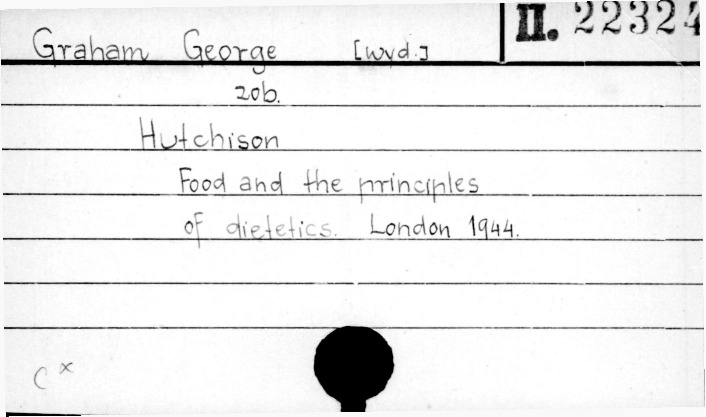 Graham George [wyd.] II. 22324
zob.
Hutchison
Food and the principles
of dietetics. London 1944.
C x